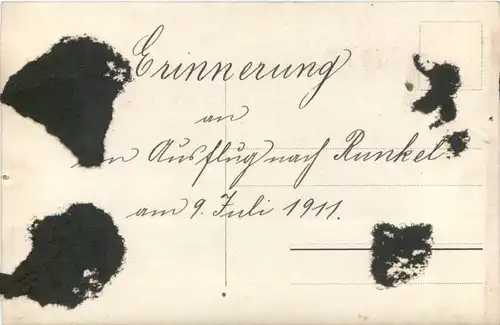 Erinnerung
an
Ausflug nach Runkel
am 9. Juli 1911.